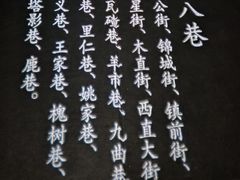 八巷
公街、锦城街、镇前街、
星街、木直街、西直大街
瓦碴巷。羊市巷、九曲巷
巷、里仁巷、姚家巷、
义巷、王家巷、槐树巷、
塔影巷、鹿巷。